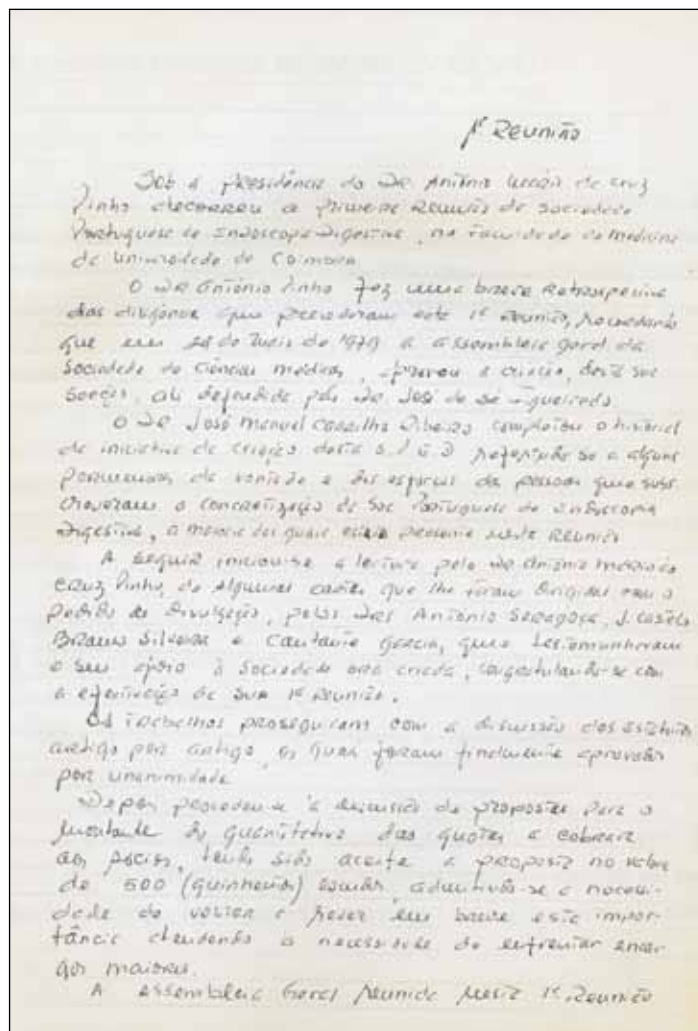 1ª Reunião
Sob a presidência do Dr. António Morais da Cruz
Pinho decorreu a primeira Reunião da Sociedade
Portuguesa de Endoscopia Digestiva, na Faculdade de Medicina
da Universidade de Coimbra.
O Dr António Pinho fez uma breve retrospectiva
das diligências que precederam esta 1ª Reunião, recordando
que em de Maio de 1979 a assembleia geral da
Sociedade de Ciências Médicas, aprovou a criação, desta sua
Secção, ali defendida pelo Dr. José de Sá Figueiredo.
O Dr José Manuel Ribeiro completou o historial
da iniciativa da criação desta referindo-se a alguns
pormenores da vontade e das pessoas que
a concretização da Soc Portuguesa de Endoscopia
Digestiva, a maioria das quais presente nesta Reunião
A seguir iniciou-se a leitura pelo Dr António Morais da
Cruz Pinho, de algumas cartas que lhe foram dirigidas com o
pedido de divulgação, pelos Drs António Saragoça, J. Castelo
Branco Silveira e Cantante Garcia, que testemunharam
o seu apoio à Sociedade ora criada, congratulando-se com
a efectivação da sua 1ª Reunião.
Os trabalhos prosseguiram com a discussão dos estatutos
artigo por artigo, os quais foram finalmente aprovados
por unanimidade
Depois procedeu-se à discussão de propostas para o
montante do quantitativo das quotas a cobrar
aos sócios, tendo sido aceite a proposta no valor
de 500 (quinhentos) escudos, admitindo-se a necessi-
dade de voltar a rever em breve esta impor-
tância atendendo à necessidade de enfrentar encar-
gos maiores.
A assembleia Geral reunida nesta 1ª Reunião